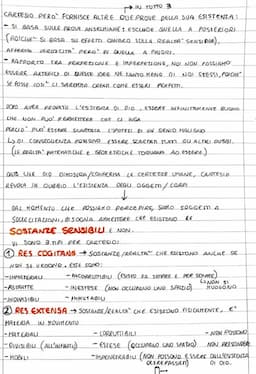 → IN TUTTO 3
CARTESIO PERO' FORNISCE ALTRE DUE PROVE DELLA SUA ESISTENZA:
- SI BASA SULLE PROVE ANSELMIANE E ESCLUDE QUELLA A POSTERIORI
(POICHE' SI BASA SU EFFETTI OVVERO SULLA REALTA' SENSIBILE),
AFFERMA VERIDICITA' PERO' DI QUELLE A PRIORI.
- RAPPORTO TRA PERFEZIONE E IMPERFEZIONE, NOI NON POSSIAMO
ESSERE ARTEFICI DI QUESTE IDEE NE TANTO MENO DI NOI STESSI, POICHE'
SE FOSSE COSI' CI SAREMMO CREATI COME ESSERI PERFETTI.
DOPO AVER PROVATO L'ESISTENZA DI DIO, ESSERE INFINITAMENTE BUONO
CHE NON PUO' PERMETTERE CHE CI INGANNI
PERCIO' PUO' ESSERE SCARTATA L'IPOTESI DI UN GENIO MALIGNO
↳ DI CONSEGUENZA POSSONO ESSERE SCARTATI TUTTI GLI ALTRI DUBBI.
(LE REALTA' MATEMATICHE E GEOMETRICHE TORNANO AD ESSERE)
DIO DIMOSTRA/CONFERMA LE CERTEZZE UMANE, CARTESIO
REVOCA IN DUBBIO L'ESISTENZA DEGLI OGGETTI/CORPI
↓
DAL MOMENTO CHE POSSIAMO PERCEPIRE, SIAMO SOGGETTI A
SOLLECITAZIONI, BISOGNA AMMETTERE CHE ESISTONO LE
SOSTANZE SENSIBILI E NON.
VI SONO 2 TIPI PER CARTESIO:
① RES COGITANS → SOSTANZE/REALTA' CHE ESISTONO ANCHE SE
NON SI VEDONO, ESSE SONO:
- IMMATERIALI - INCORRUTTIBILI (ESISTO DA SEMPRE E PER SEMPRE)
- ASTRATTE - INESTESE (NON OCCUPANO UNO SPAZIO) NON SI MUOVONO
- INDIVISIBILI - IMMUTABILI
② RES EXTENSA → SOSTANZE/REALTA' CHE ESISTONO FISICAMENTE, E'
MATERIA IN MOVIMENTO
- MATERIALI - CORRUTTIBILI - NON PENSANO
- DIVISIBILI (ALL'INFINITO) - ESTESE (OCCUPANO UNO SPAZIO) NON
- MOBILI - (NON POSSONO ESSERE ALL'ESISTENZA
DI OLTREPASSATI)